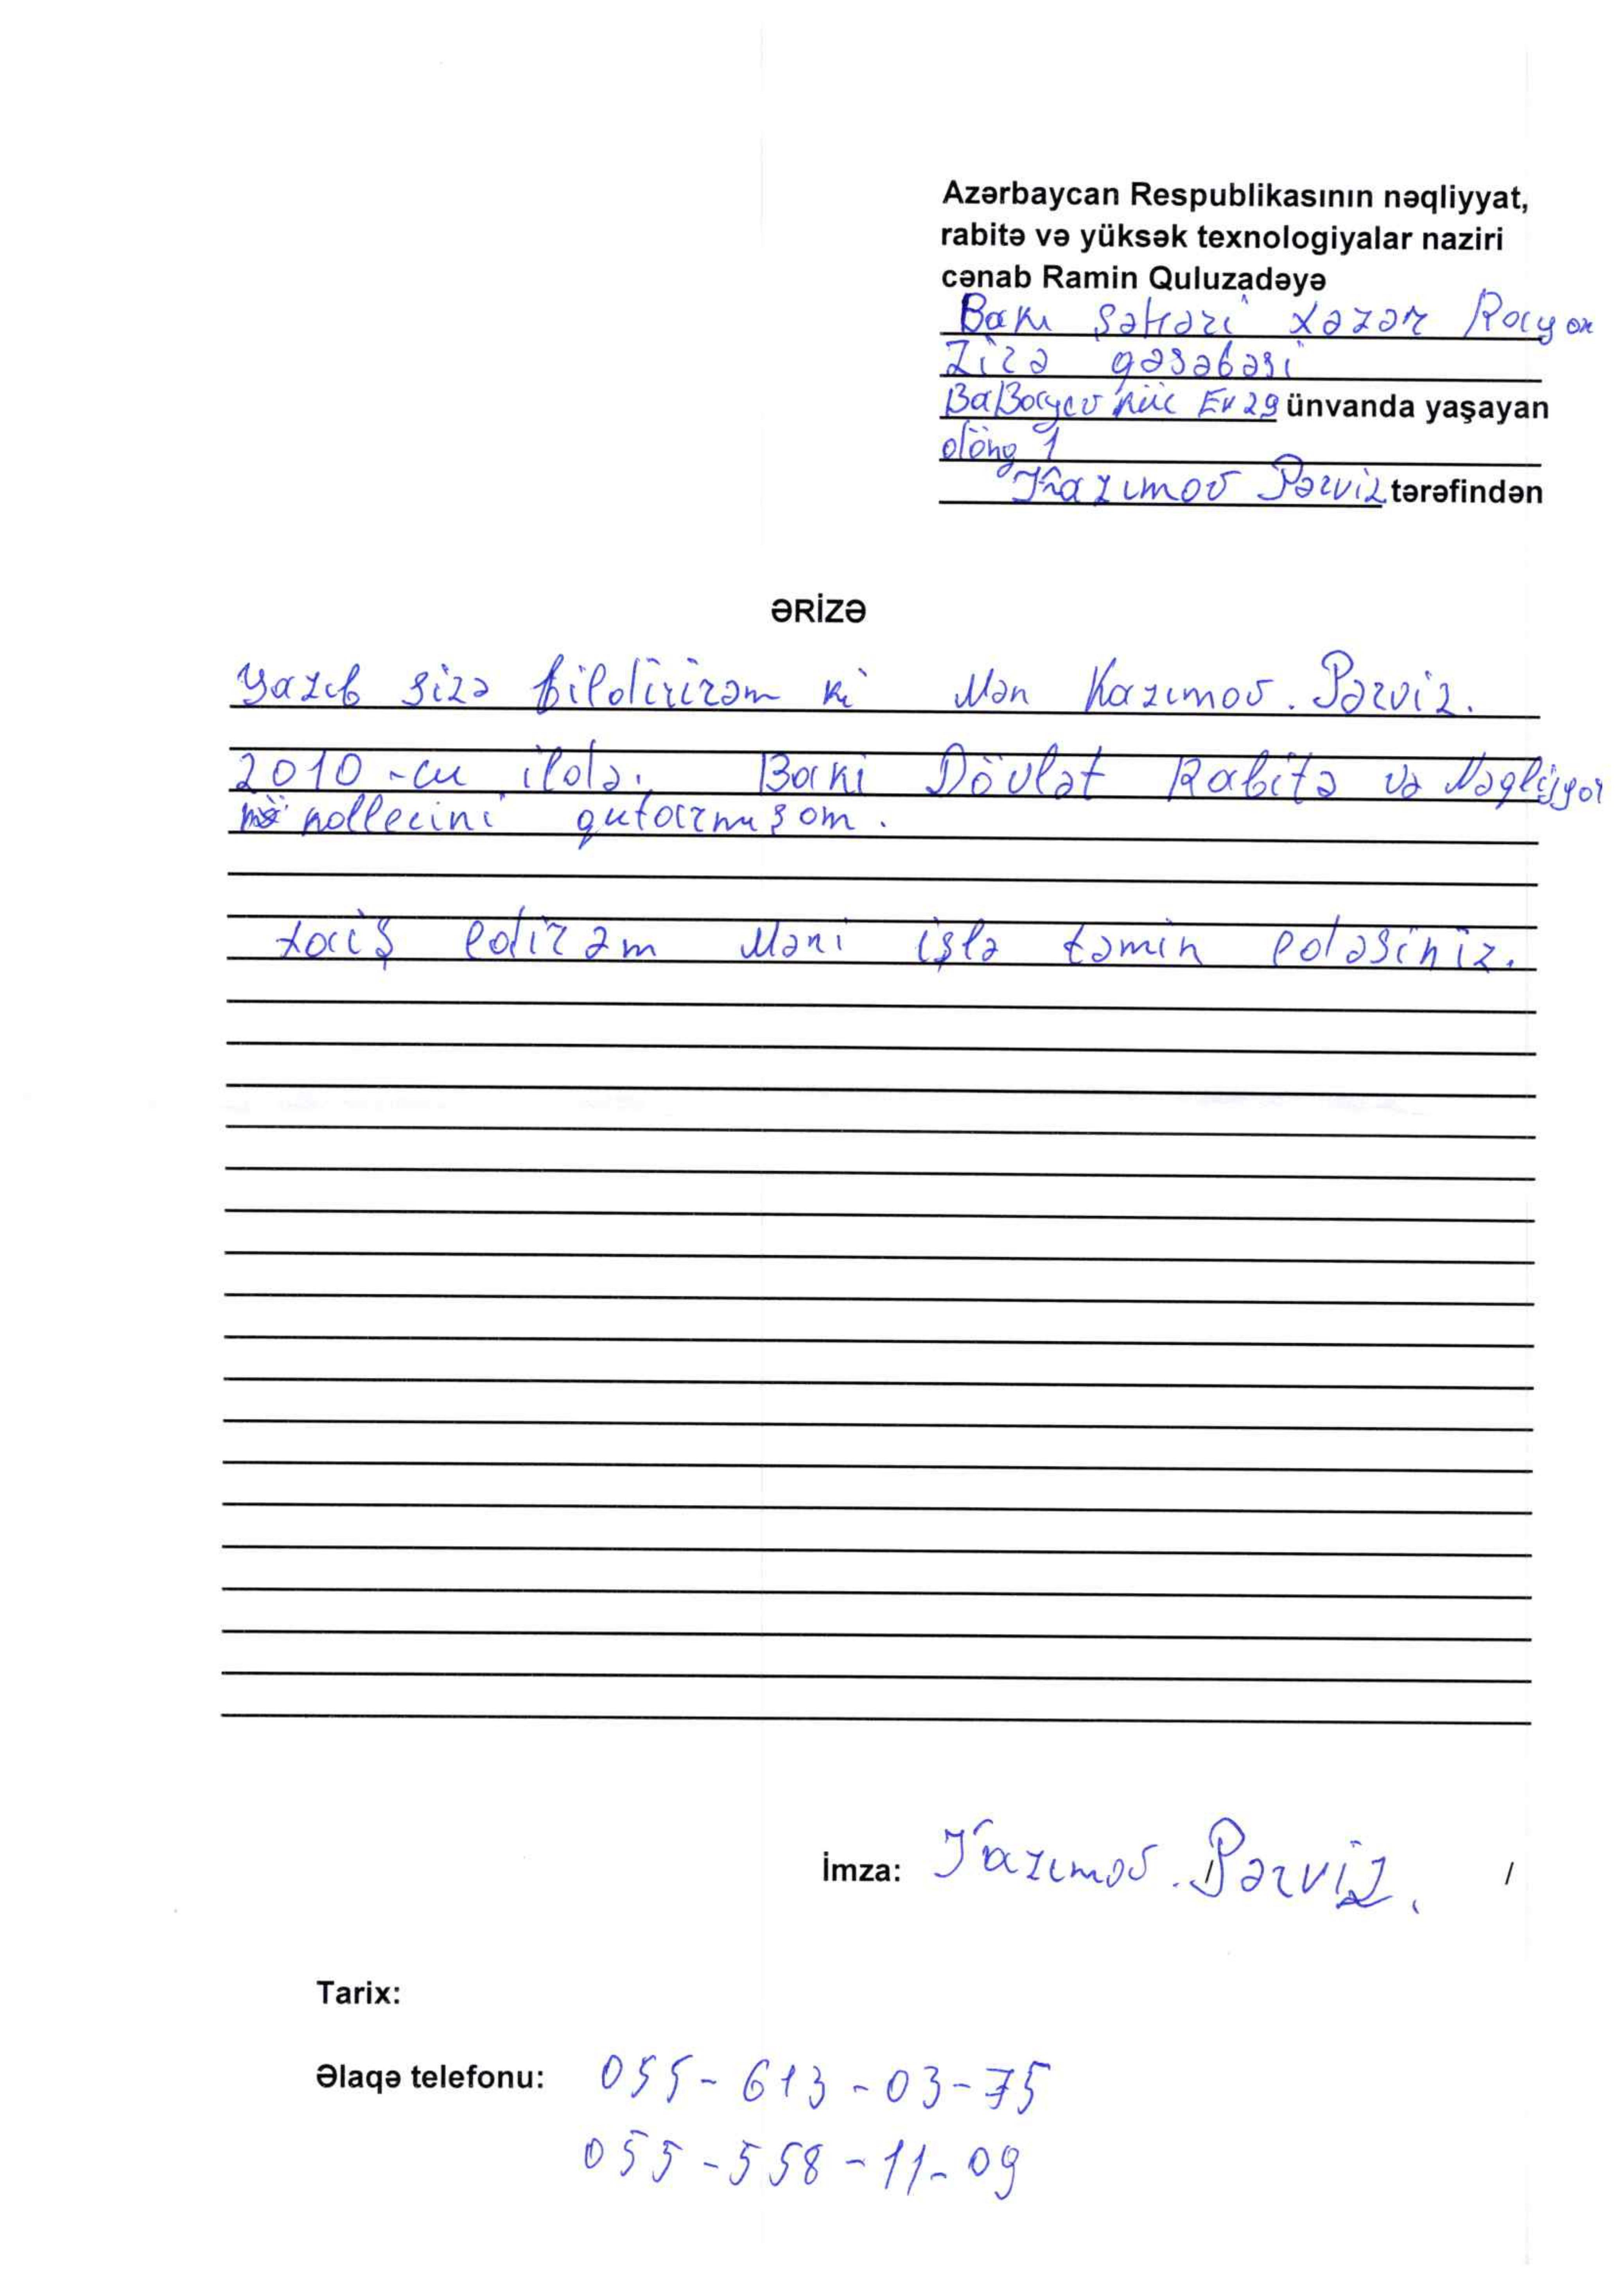 Azərbaycan Respublikasının nəqliyyat,
rabitə və yüksək texnologiyalar naziri
cənab Ramin Quluzadəyə
Bakı şəhəri xəzər Rayon
Zirə qəsəbəsi
BaBayev küç Ev 29 ünvanda yaşayan
döng 1
Kazımov Pərviz tərəfindən
ƏRİZƏ
Yazıb sizə bildirirəm ki Mən Kazımov. Pərviz.
2010-cu ildə. Baki Dövlət Rabitə və Nəqliyyat
kollecini qutarmışam.
xaiş edirəm Məni işlə təmin edəsiniz.
İmza: Kazımov. Pərviz. /
Tarix:
Əlaqə telefonu: 055-613-03-75
055-558-11-09